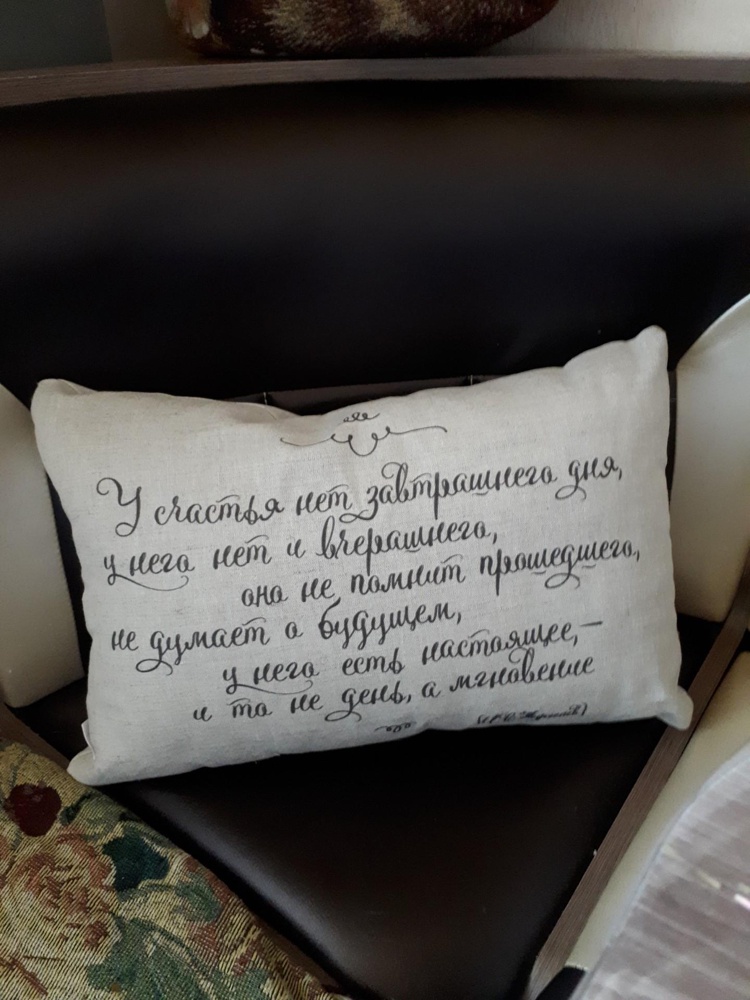 У счастья нет завтрашнего дня,
у него нет и вчерашнего,
оно не помнит прошедшего,
не думает о будущем,
у него есть настоящее,—
и то не день, а мгновение